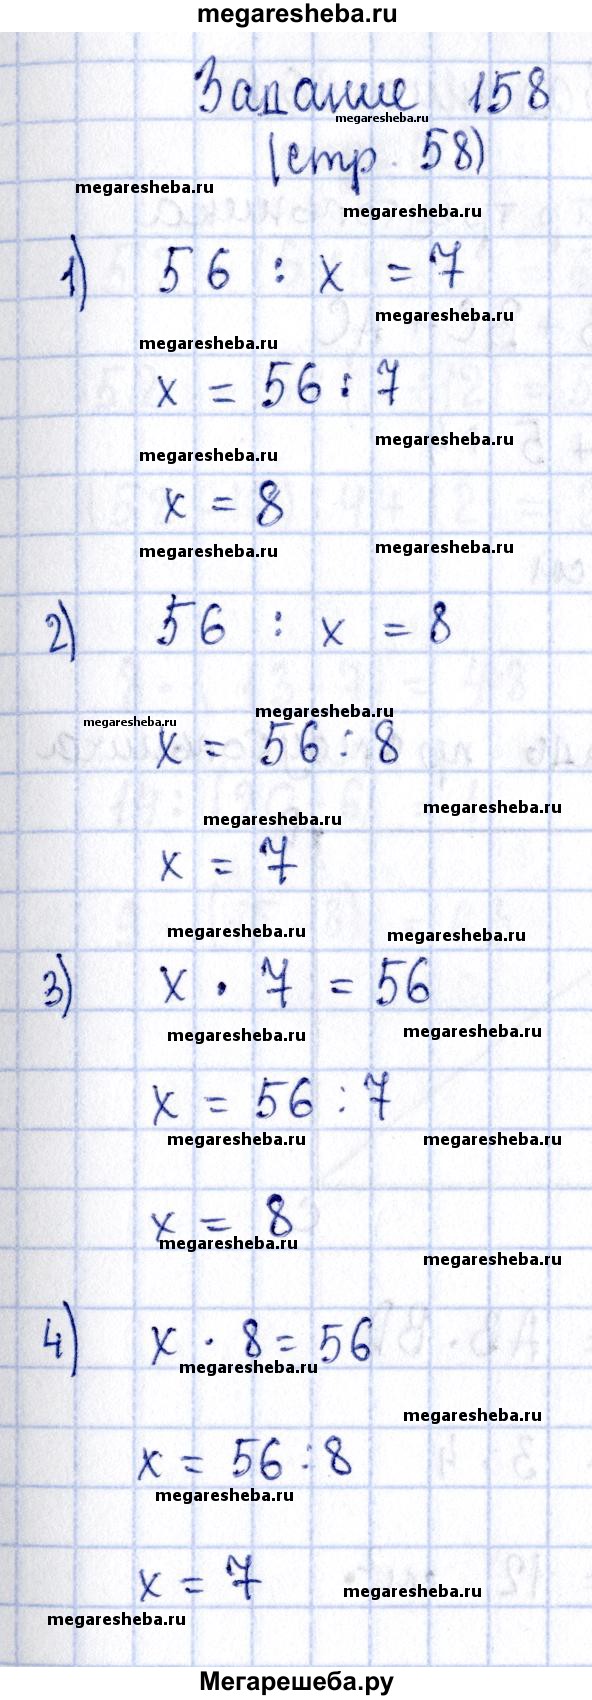 megaresheba.ru
Задание 158
megaresheba.ru
(стр. 58)
megaresheba.ru
megaresheba.ru
1) 56 : x = 7
megaresheba.ru
megaresheba.ru
x = 56 : 7
megaresheba.ru
megaresheba.ru
x = 8
megaresheba.ru
megaresheba.ru
2) 56 : x = 8
megaresheba.ru
megaresheba.ru
x = 56 : 8
megaresheba.ru
megaresheba.ru
x = 7
megaresheba.ru
megaresheba.ru
3) x · 7 = 56
megaresheba.ru
megaresheba.ru
x = 56 : 7
megaresheba.ru
megaresheba.ru
x = 8
megaresheba.ru
megaresheba.ru
4) x · 8 = 56
megaresheba.ru
megaresheba.ru
x = 56 : 8
megaresheba.ru
x = 7
megaresheba.ru
megaresheba.ru
Мегарешеба.ру